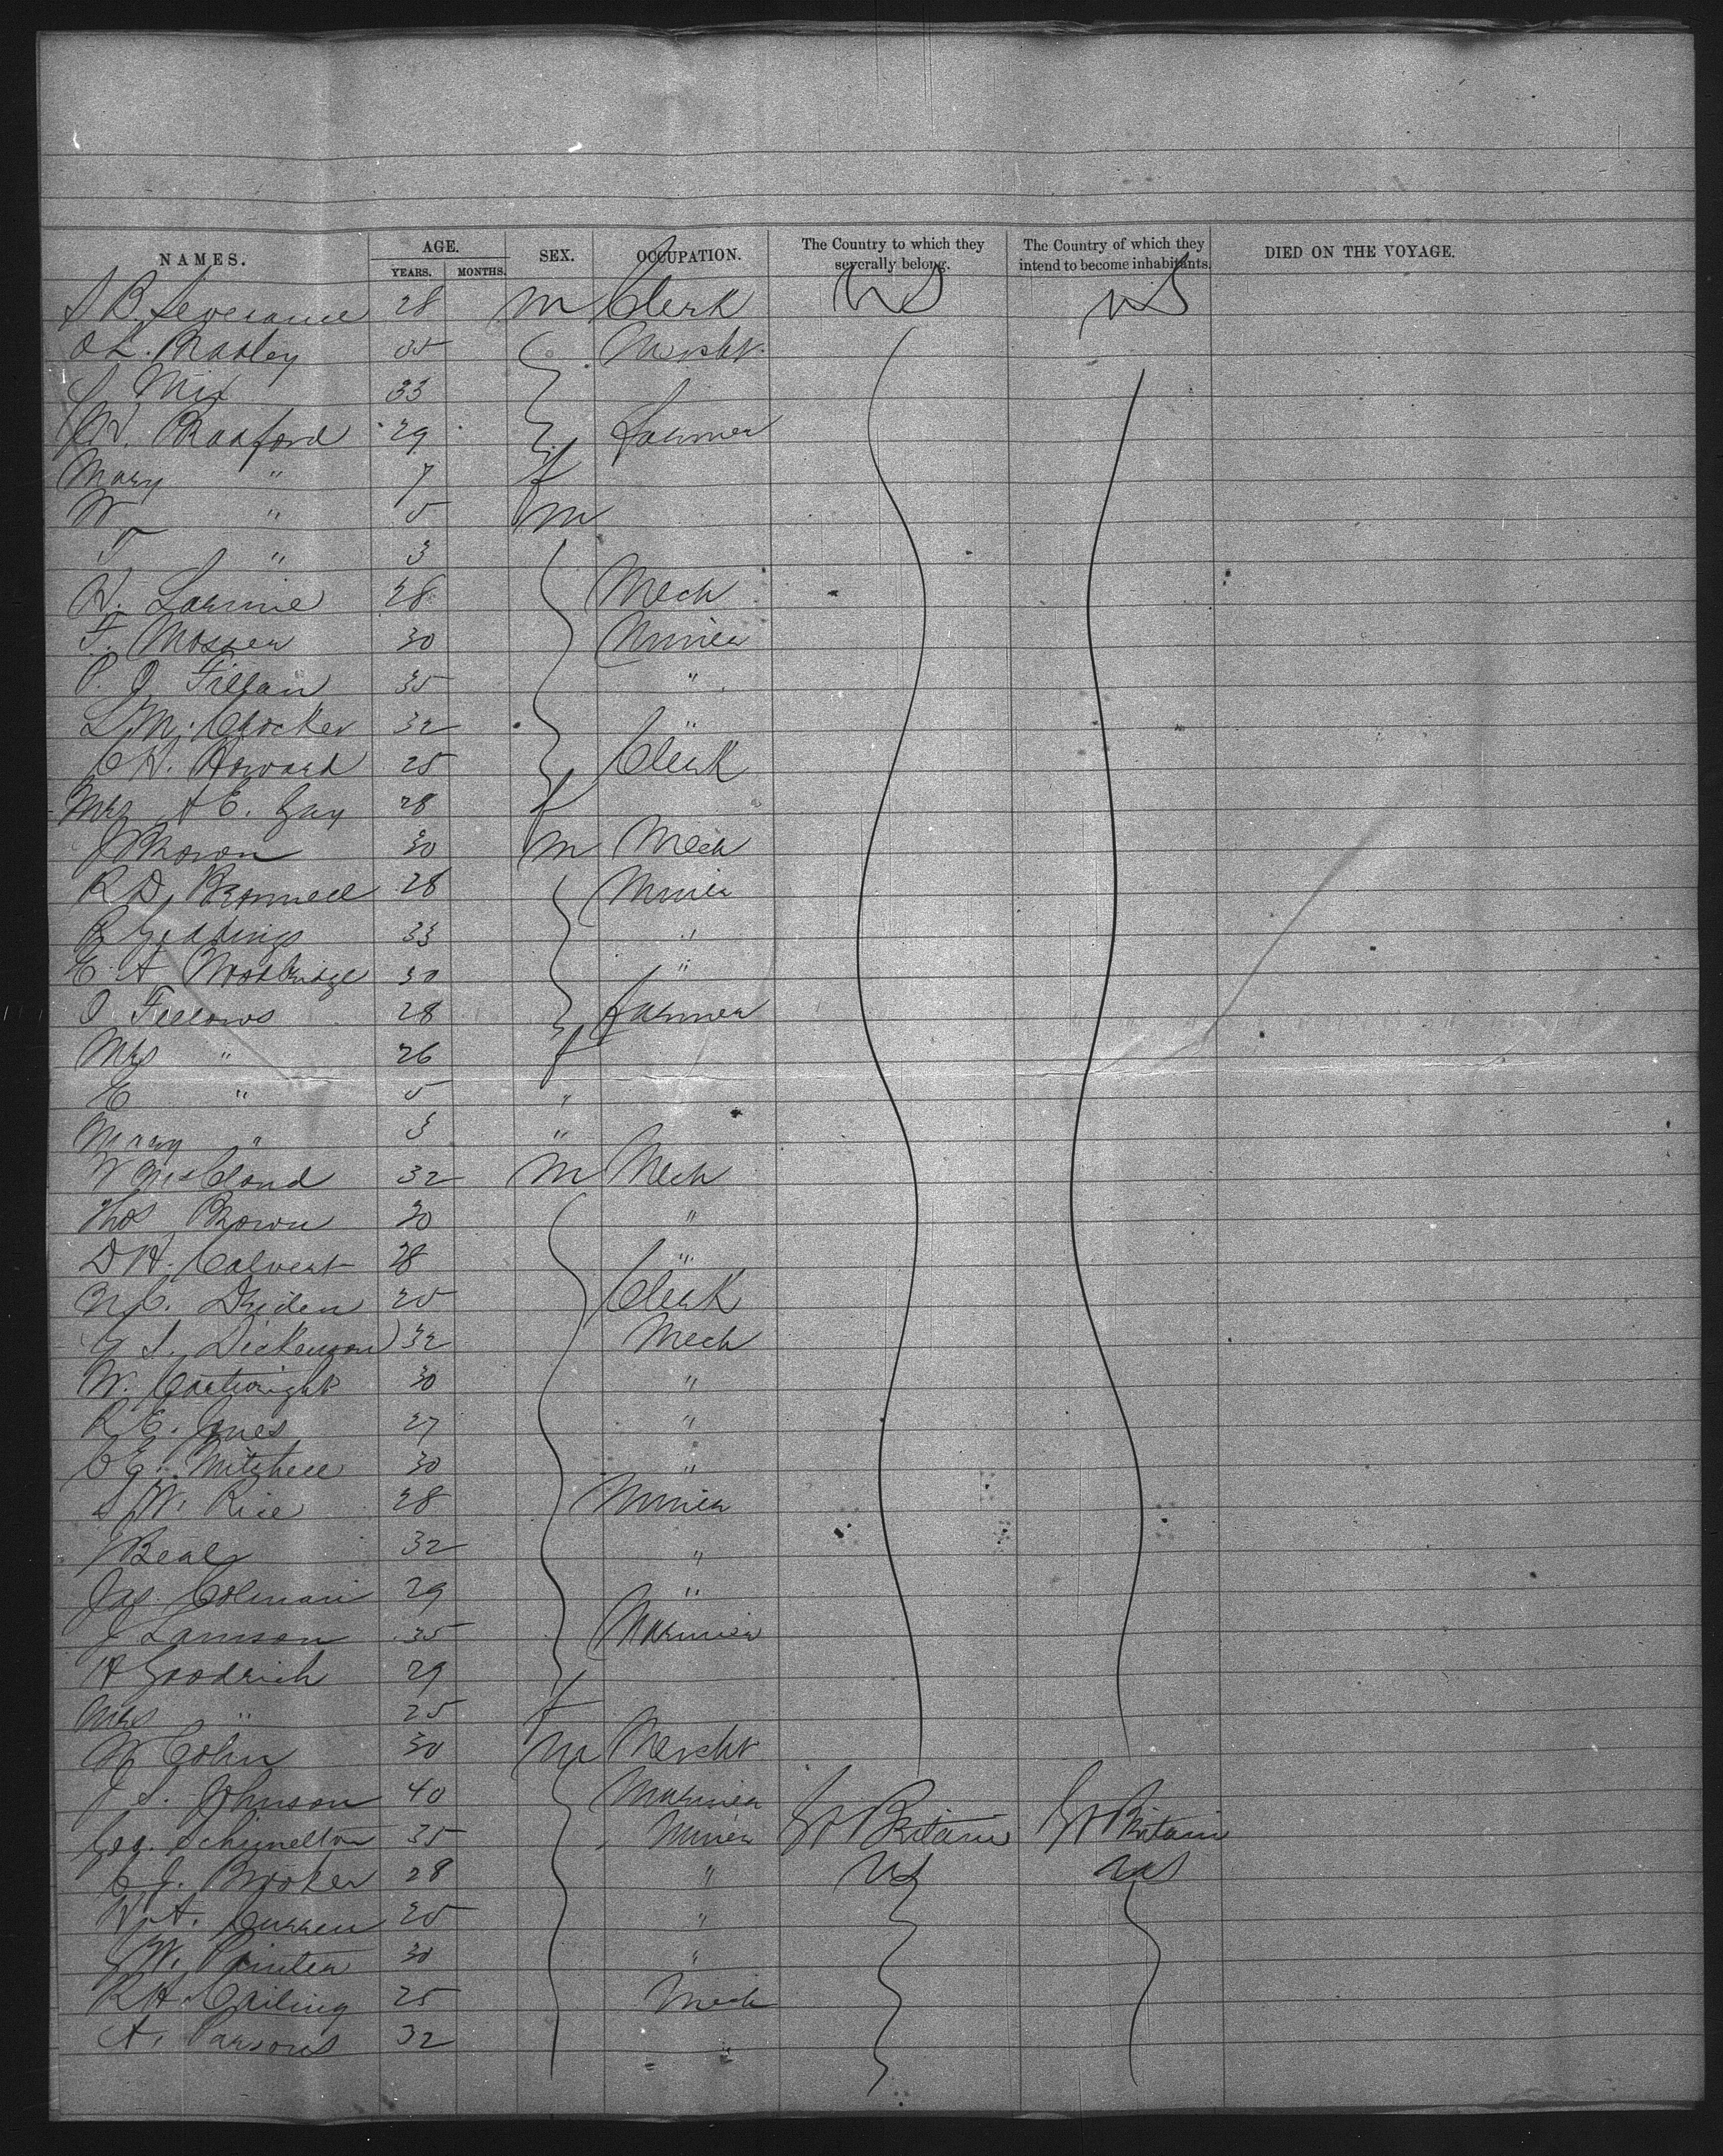 NAMES. AGE. SEX. OCCUPATION. The Country to which they severally belong. The Country of which they intend to become inhabitants. DIED ON THE VOYAGE.
YEARS. MONTHS.
S B. Severance 28 m Clerk US US
O L. Bradley 35 Mercht.
S Mix 33
H. Bradford 29 Farmer
Mary " 7 f
W " 5 m
T " 3
H. Larine 28 Mech
F. Mosser 30 Miner
P. J. Fillan 35 "
L. M. Crocker 32 "
C H. Howard 25 Clerk
Mrs A E. Gay 28 f
J Brown 30 m Mech
R D. Bromell 28 Miner
R Geddings 33 "
E. A Woodbridge 30 "
O Fellows 28 Farmer
Mrs " 26 f
E " 5 "
Mary " 3 "
W McCloud 32 m Mech
Thos Brown 30 "
D H. Calvert 28 "
N C. Driden 25 Clerk
G S. Dickenson 32 Mech
W. Cartwright 30 "
R E. Jones 27 "
C E. Mitchell 30 "
S W. Rice 28 Miner
J Beal 32 "
Jas. Colman 29 "
J Lamson 35 Mariner
H Goodrich 29
Mrs " 25 f
W Cohn 30 m Mercht
J S. Johnson 40 Mariner
Geo. 35 Miner Gt Britain Gt Britain
C J. Booker 28 " US US
W A. Curren 25 "
G W. Painter 30 "
R H. 25 Mech
A. Parsons 32 "